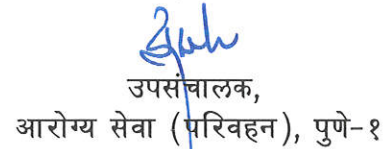 उपसंचालक,
आरोग्य सेवा (परिवहन), पुणे-१